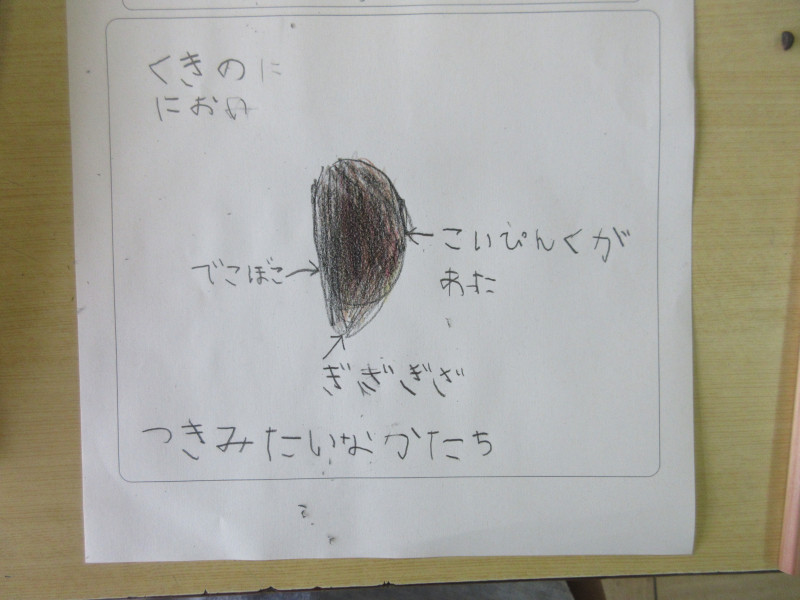 くきのに
におい
でこぼこ
こいぴんくが
あた
ぎぎぎざ
つきみたいなかたち